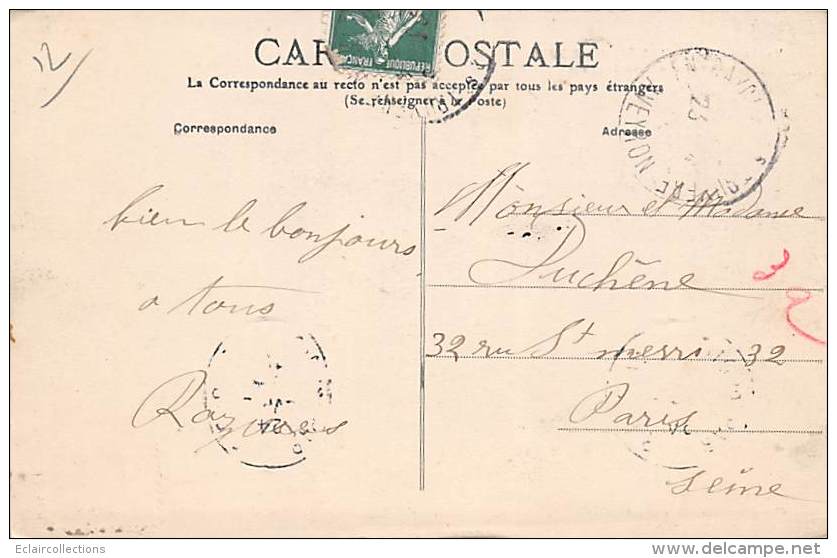 12
CARTE POSTALE
REPUBLIQUE FRANÇAISE
La Correspondance au recto n'est pas acceptée par tous les pays étrangers
(Se renseigner à la Poste)
Correspondance
Adresse
23
AVEYRON
bien le bonjours
a tous
Monsieur et Madame
Duchêne
32 rue St merri 32
Paris
Seine
32
Eclaircollections
delcampe.net